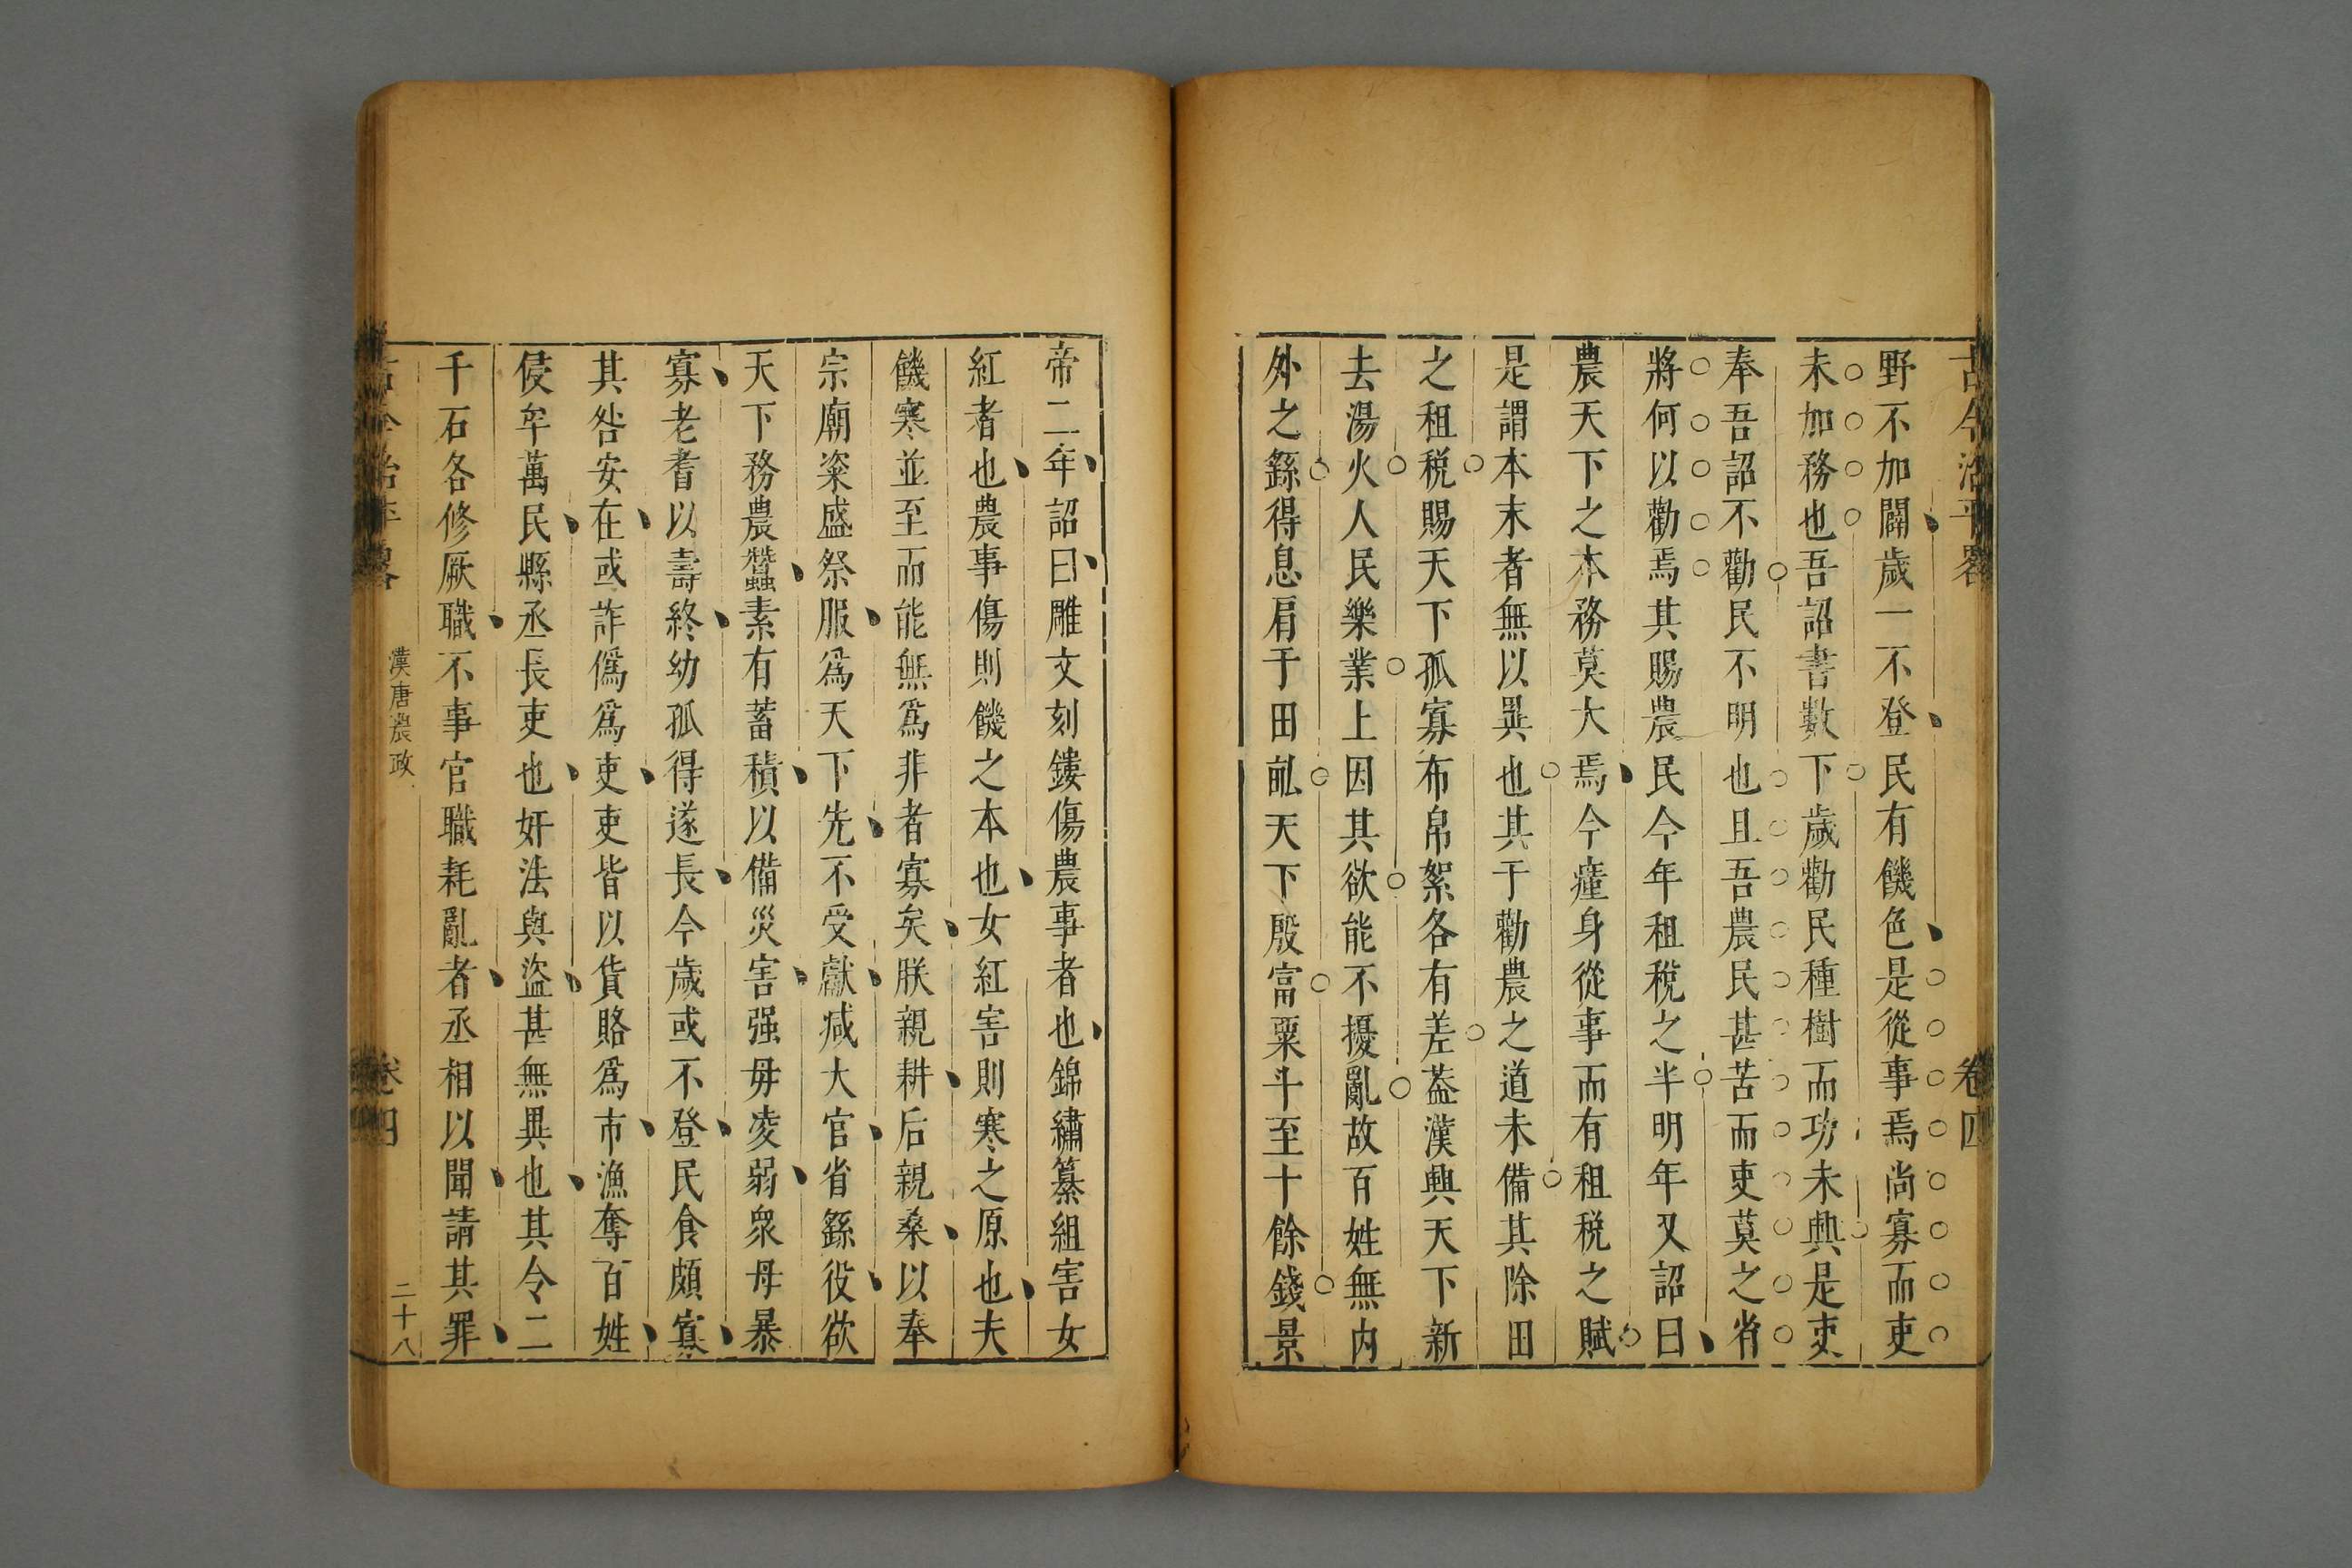 古今治平畧
卷四
野不加闢歲一不登民有饑色是從事焉尚寡而吏
未加務也吾詔書數下歲勸民種樹而功未興是吏
奉吾詔不勸民不明也且吾農民甚苦而吏莫之省
將何以勸焉其賜農民今年租稅之半明年又詔曰
農天下之本務莫大焉今廑身從事而有租稅之賦
是謂本末者無以異也其于勸農之道未備其除田
之租稅賜天下孤寡布帛絮各有差葢漢興天下新
去湯火人民樂業上因其欲能不擾亂故百姓無內
外之繇得息肩于田畝天下殷富粟斗至十餘錢景
帝二年詔曰雕文刻鏤傷農事者也錦繡纂組害女
紅者也農事傷則饑之本也女紅害則寒之原也夫
饑寒並至而能無爲非者寡矣朕親耕后親桑以奉
宗廟粢盛祭服爲天下先不受獻减大官省繇役欲
天下務農蠶素有蓄積以備災害强毋凌弱衆毋暴
寡老耆以壽終幼孤得遂長今歲或不登民食頗寡
其咎安在或詐僞爲吏吏皆以貨賂爲市漁奪百姓
侵牟萬民縣丞長吏也奸法與盜盜甚無異也其令二
千石各修厥職不事官職耗亂者丞相以聞請其罪
古今治平畧
漢唐農政
卷四
二十八